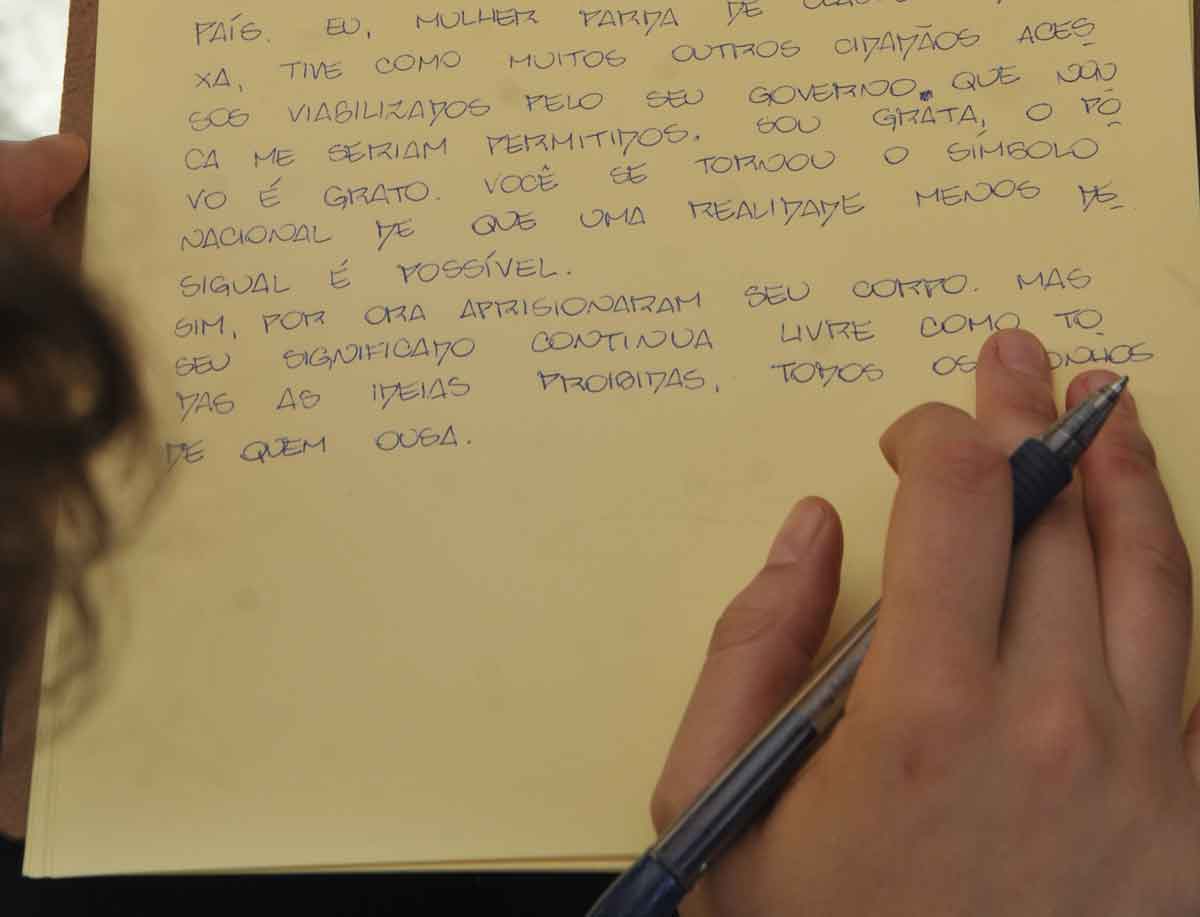 PAÍS. EU, MULHER PARDA DE
XA, TIVE COMO MUITOS OUTROS CIDADÃOS ACES
SOS VIABILIZADOS PELO SEU GOVERNO, QUE NUN
CA ME SERIAM PERMITIDOS. SOU GRATA, O PO
VO É GRATO. VOCÊ SE TORNOU O SÍMBOLO
NACIONAL DE QUE UMA REALIDADE MENOS DE
SIGUAL É POSSÍVEL.
SIM, POR ORA APRISIONARAM SEU CORPO. MAS
SEU SIGNIFICADO CONTINUA LIVRE COMO TO
DAS AS IDEIAS PROIBIDAS, TODOS OS SONHOS
DE QUEM OUSA.